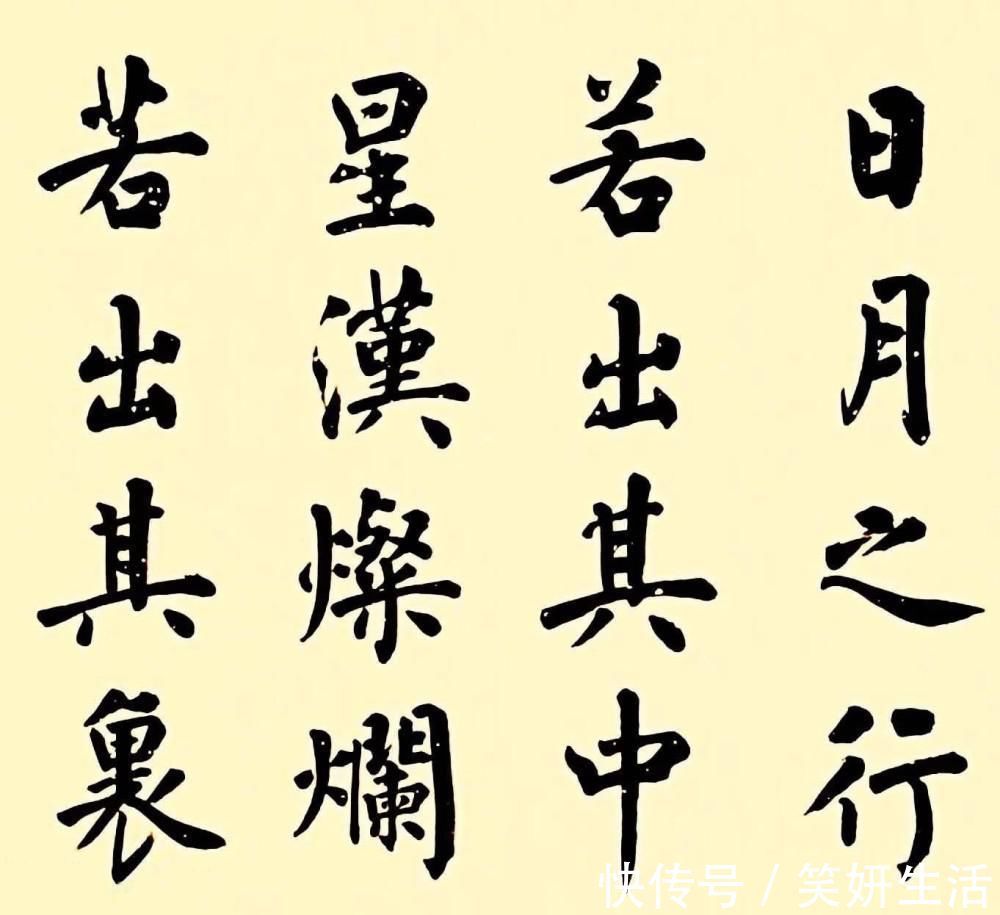 日月之行
若出其中
星漢燦爛
若出其裏
快传号/笑妍生活